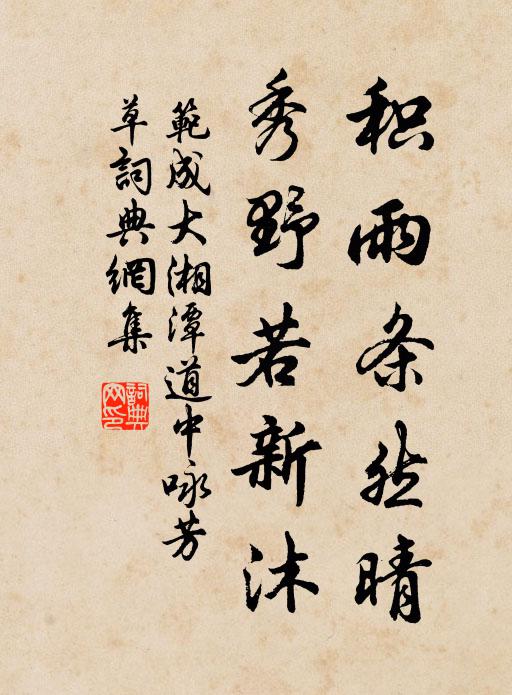 积雨条然晴
秀野若新沐
範成大湘潭道中咏芳
草詞典網集
詞典
网印